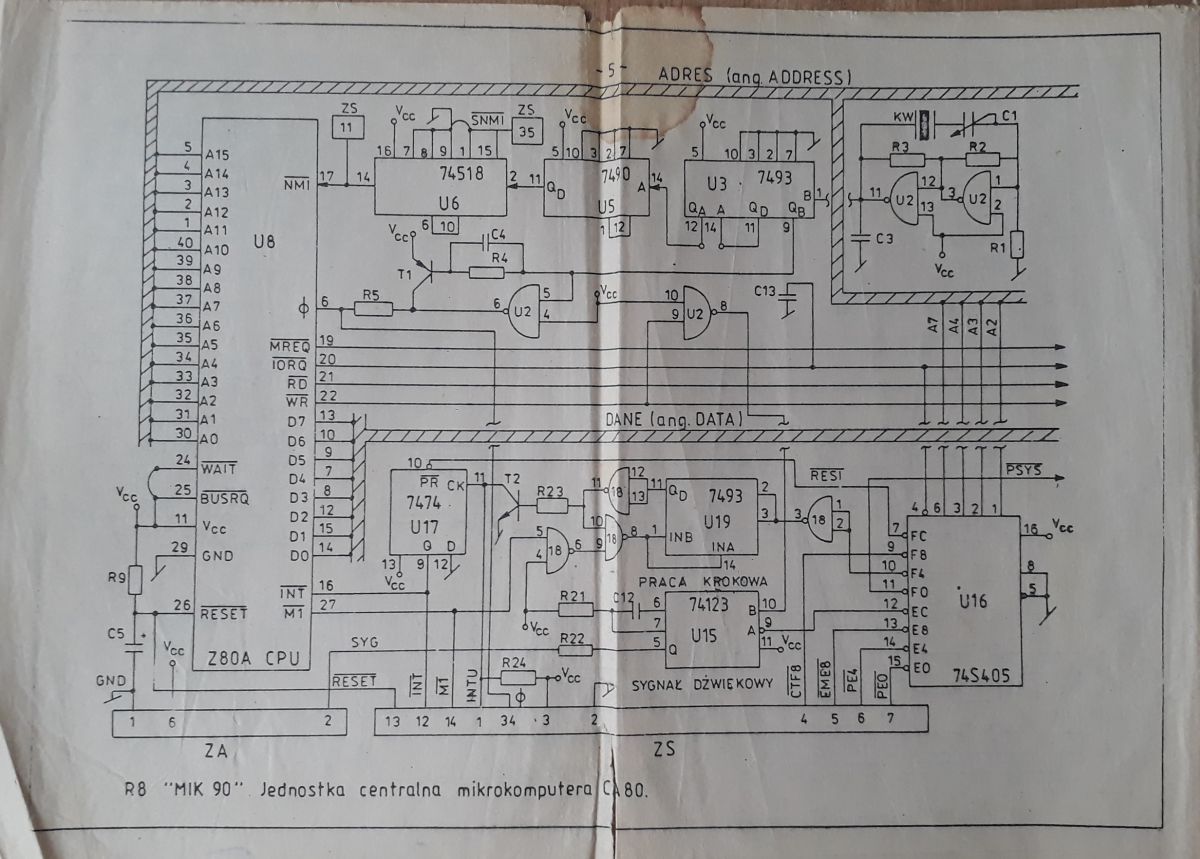 - 5 -
ADRES (ang. ADDRESS)
ZS
11
Vcc
SNMI
ZS
35
Vcc
Vcc
KW
C1
16 7 8 9 1 15
5 10 3 2 7
5 10 3 2 7
R3
R2
5 A15
4 A14
3 A13
2 A12
1 A11
40 A10
39 A9
38 A8
37 A7
36 A6
35 A5
34 A4
33 A3
32 A2
31 A1
30 A0
24 WAIT
25 BUSRQ
11 Vcc
29 GND
26 RESET
U8
Z80A CPU
NMI 17
ϕ 6
MREQ 19
IORQ 20
RD 21
WR 22
D7 13
D6 10
D5 9
D4 7
D3 8
D2 12
D1 15
D0 14
INT 16
M1 27
14 74S18 2
U6
6 10
11 QD 7490 A 14
U5
1 12
U3 7493 B 1
QA A QD QB
12 14 11 9
11 U2 12 13
3 U2 1 2
C3
Vcc
R1
Vcc
T1
C4
R4
R5
6 U2 5 4
Vcc
10 9 U2 8
C13
A7 A4 A3 A2
DANE (ang. DATA)
10
PR CK 11
7474
U17
Q D
13 9 12
Vcc
T2
R23
11 18 12 13
10 9 18 8
5 4 18 6
11 QD 7493 2
U19 3
1 INB INA
14
3 18 1 2
RESI
PSYS
PRACA KROKOWA
Vcc
R21
C12
R22
6 74123 B 10
7 A 9
5 Q U15 11
Vcc
SYGNAŁ DŹWIĘKOWY
4 6 3 2 1
7 FC
9 F8
10 F4
11 F0
12 EC
13 E8
14 E4
15 E0
U16
74S405
16 Vcc
8
5
Vcc
R9
C5 +
GND
Vcc
SYG
RESET
INT
M1
INTU
R24
ϕ
Vcc
CTF8
EME8
PE4
PE0
1 6 2
13 12 14 1 34 3 2 4 5 6 7
ZA
ZS
R8 "MIK 90" Jednostka centralna mikrokomputera CA80.